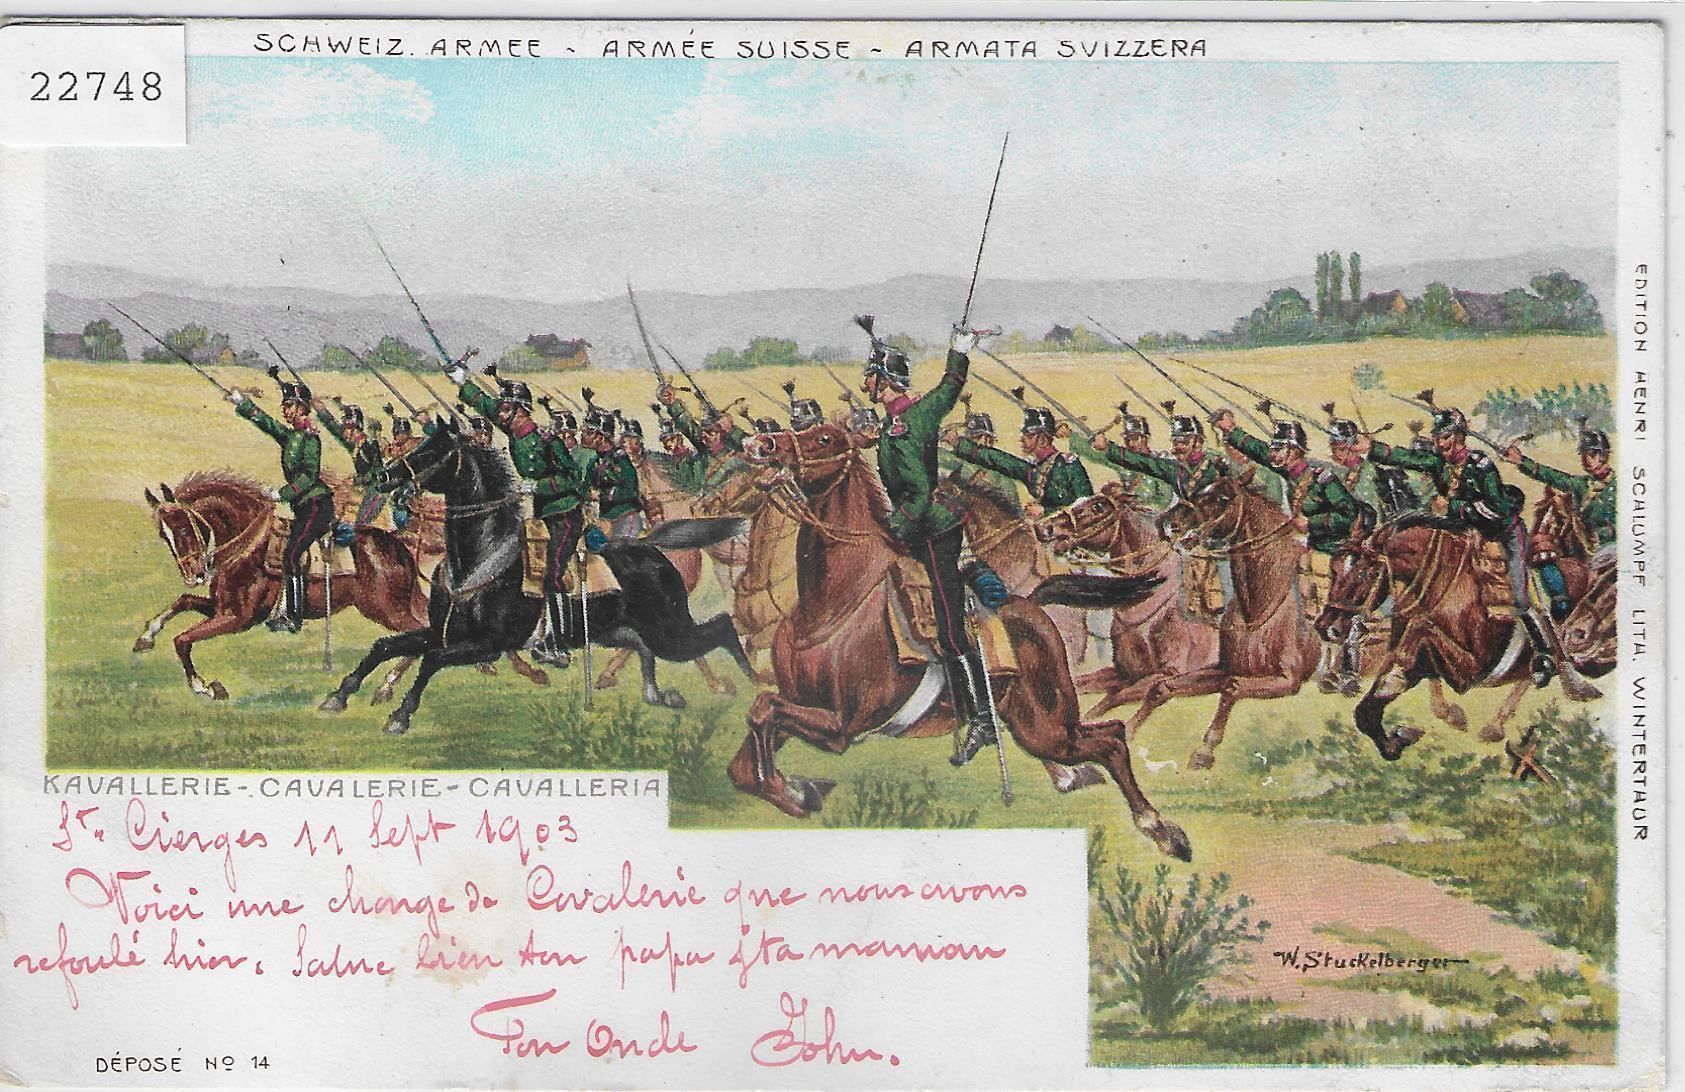 SCHWEIZ. ARMEE - ARMÉE SUISSE - ARMATA SVIZZERA
22748
EDITION HENRI SCHLUMPF LITH. WINTERTHUR
KAVALLERIE-. CAVALERIE - CAVALLERIA
St. Cierges 11 Sept 1903
Voici une charge de Cavalerie que nous avons
refoulé hier. Salue bien ton papa & ta maman
Ton Oncle John.
W. Stuckelberger
DÉPOSÉ No 14